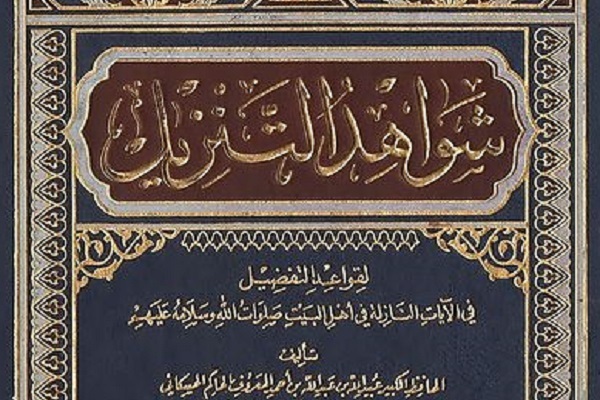 شَوَاهِدُ التَّنزِيل
لقواعد التفضيل
في الآيات النازلة في أهل البيت صلوات الله وسلامه عليهم
تأليف
الحافظ الكبير عبيد الله بن عبد الله بن أحمد المعروف بالحاكم الحسكاني